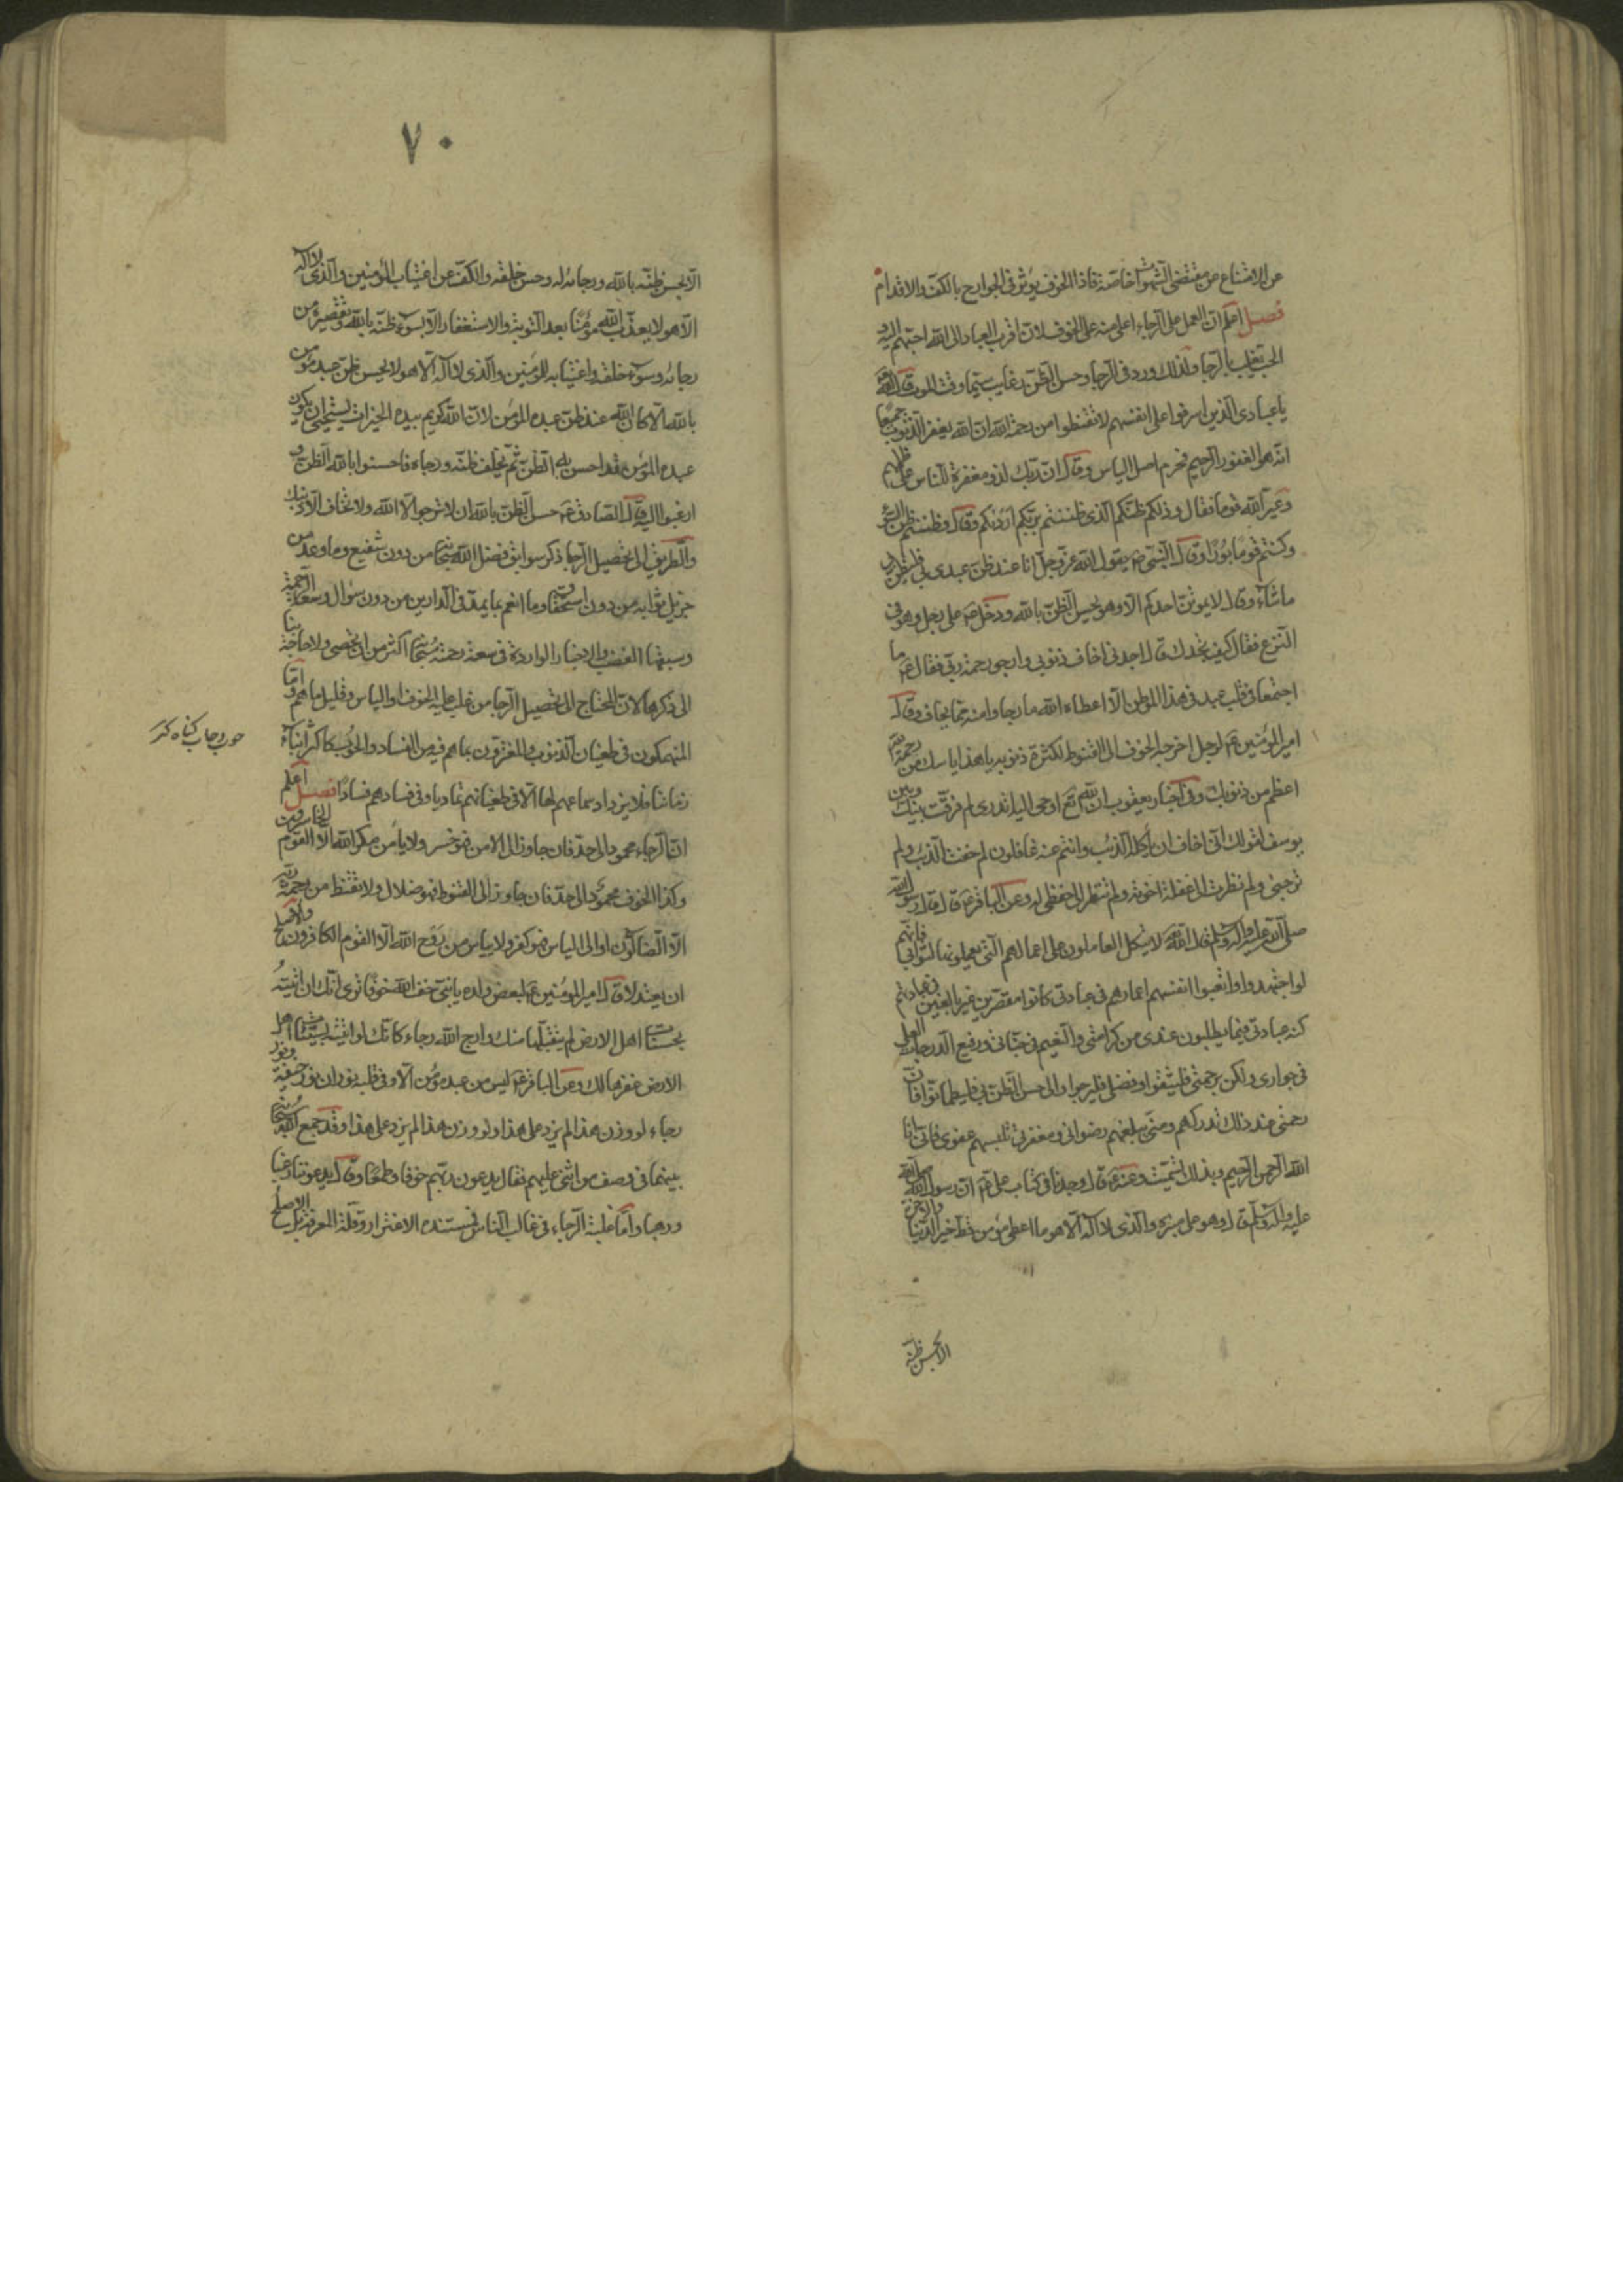 عن الامتناع من مقتضى الشهوات خاصة فاذا الخوف يؤثر فى الجوارح بالكف والاقدام
فصل اعلم ان العمل على الرجاء اعلى منه على الخوف لان اقرب العباد الى الله احبهم اليه و
الحب يغلب بالرجا ولذلك ورد فى الرجا وحسن الظن رغايب سيما وقت الموت قال الله تعالى
يا عبادى الذين اسرفوا على انفسهم لا تقنطوا من رحمة الله ان الله يغفر الذنوب جميعا
انه هو الغفور الرحيم فحرم اصل الياس وقال ان ربك لذو مغفرة للناس على ظلمهم
وعير الله قوما فقال وذلكم ظنكم الذى ظننتم بربكم ارديكم وقال وظننتم ظن السوء
وكنتم قوما بورا وقال النبى ص يقول الله عز وجل انا عند ظن عبدى بى فليظن بى
ما شاء وقال لا يموتن احدكم الا وهو يحسن الظن بالله ودخل ص على رجل وهو فى
النزع فقال كيف تجدك قال اجدنى اخاف ذنوبى وارجو رحمة ربى فقال ص ما
اجتمعا فى قلب عبد فى هذا الموطن الا اعطاه الله ما رجا وامنه مما يخاف وقال
امير المؤمنين ع لرجل اخرجه الخوف الى القنوط لكثرة ذنوبه يا هذا اياسك من رحمة الله
اعظم من ذنوبك وفى اخبار يعقوب ان الله تع اوحى اليه اتدرى لم فرقت بينك وبين
يوسف لقولك انى اخاف ان ياكله الذئب وانتم عنه غافلون لم خفت الذئب ولم
ترجنى ولم نظرت الى غفلة اخوته ولم تنظر الى حفظى له وعن الباقر ع قال قال رسول الله
صلى الله عليه واله وسلم قال الله تع لا يتكل العاملون على اعمالهم التى يعملونها لثوابى فانهم
لو اجتهدوا واتعبوا انفسهم اعمارهم فى عبادتى كانوا مقصرين غير بالغين فى عبادتهم
كنه عبادتى فيما يطلبون عندى من كرامتى والنعيم فى جناتى ورفيع الدرجات العلى
فى جوارى ولكن برحمتى فليثقوا وفضلى فليرجوا والى حسن الظن بى فليطمانوا فان
رحمتى عند ذلك تدركهم ومنى يبلغهم رضوانى ومغفرتى تلبسهم عفوى فانى انا
الله الرحمن الرحيم وبذلك تسميت وعنه ع قال وجدنا فى كتاب على ع ان رسول الله صلى الله
عليه واله وسلم قال وهو على منبره والذى لا اله الا هو ما اعطى مؤمن قط خير الدنيا والاخرة
الا بحسن ظنه
٧٠
الا بحسن ظنه بالله ورجائه له وحسن خلقه والكف عن اغتياب المؤمنين والذى لا اله
الا هو لا يعذب الله مؤمنا بعد التوبة والاستغفار الا بسوء ظنه بالله وتقصيره من
رجائه وسوء خلقه واغتيابه للمؤمنين والذى لا اله الا هو لا يحسن ظن عبد مؤمن
بالله الا كان الله عند ظن عبده المؤمن لان الله كريم بيده الخيرات يستحيى ان يكون
عبده المؤمن قد احسن به الظن ثم يخلف ظنه ورجاءه فاحسنوا بالله الظن و
ارغبوا اليه وقال الصادق ع حسن الظن بالله ان لا ترجو الا الله ولا تخاف الا ذنبك
والطريق الى تحصيل الرجا ذكر سوابق فضل الله سبحانه من دون شفيع وما وعد من
جزيل ثوابه من دون استحقاق وما انعم بما يمد فى الدارين من دون سؤال وسعة الرحمة
وسبقها الغضب والاخبار الواردة فى سعة رحمته سبحانه اكثر من ان تحصى ولا حاجة بنا
الى ذكرها لان المحتاج الى تحصيل الرجا من غلب عليه الخوف او الياس وقليل ما هم واما
المنهمكون فى طغيان الذنوب والمغترون بما هم فيه من الفساد والحوب كاكثر ابناء
زماننا فلا يزداد سماعهم لها الا فى طغيانهم تماديا وفى فسادهم فسادا فصل اعلم
ان الرجاء محمود الى حد فان جاوز الى الامن فهو خسر ولا يأمن مكر الله الا القوم الخاسرون
وكذا الخوف محمود الى حد فان جاوز الى القنوط فهو ضلال ولا تقنط من رحمة ربه
الا الضالون او الى الياس فهو كفر ولا يياس من روح الله الا القوم الكافرون والاصلح
ان يعتدلا قال امير المؤمنين ع لبعض ولده يا بنى خف الله خوفا ترى انك ان اتيته
بحسنات اهل الارض لم يتقبلها منك وارج الله رجاء كانك لو اتيته بسيئات اهل
الارض غفرها لك وعن الباقر ع ليس من عبد مؤمن الا وفى قلبه نوران نور خيفة ونور
رجاء لو وزن هذا لم يزد على هذا ولو وزن هذا لم يزد على هذا وقد جمع الله سبحانه
بينهما فى وصف من اثنى عليهم فقال يدعون ربهم خوفا وطمعا وقال يدعوننا رغبا
ورهبا واما غلبة الرجاء فى غالب الناس فمستنده الاغترار وقلة المعرفة بل الاصلح
حوب وحاب كناه كند